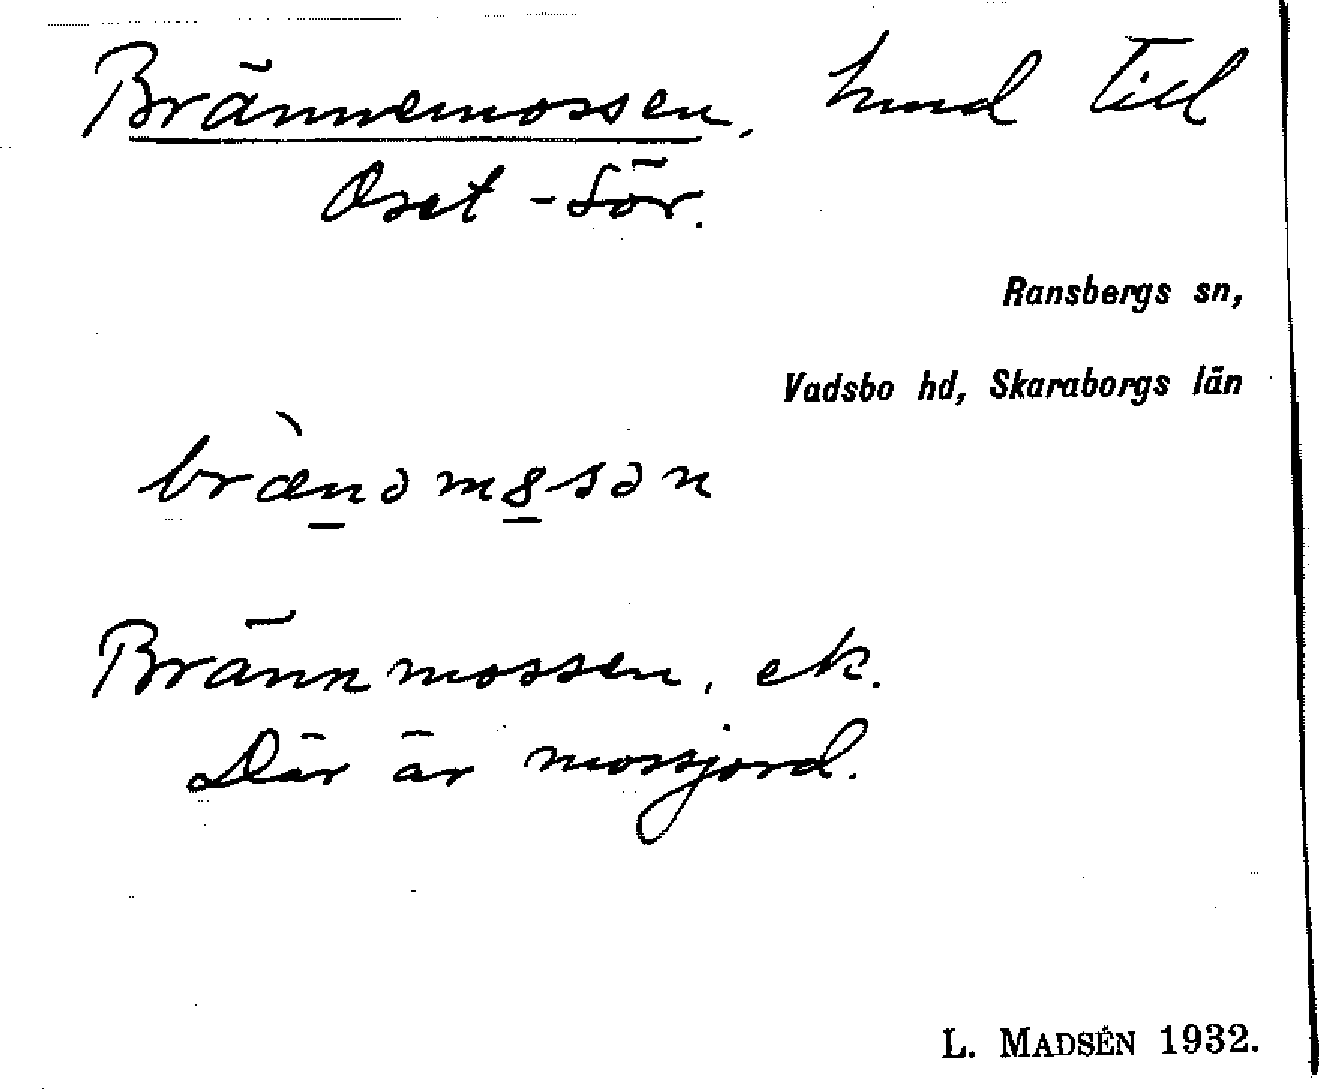 Brännemossen, hmd till
Oset - Sör.
Ransbergs sn,
Vadsbo hd, Skaraborgs län
bræ̀nəm8sən
Brännmossen, ek.
Där är mossjord.
L. MADSÉN 1932.